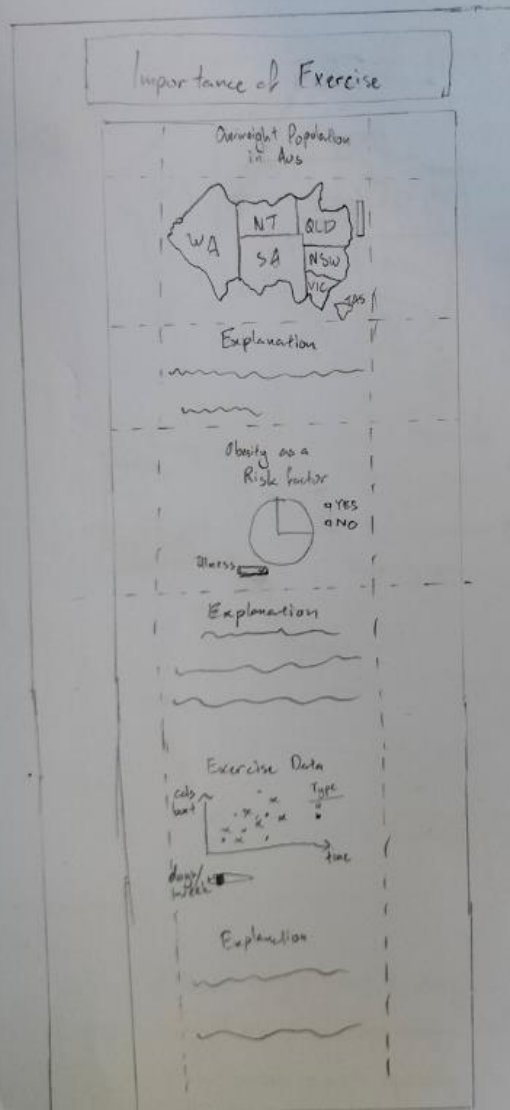 Importance of Exercise
Overweight Population
in Aus
NT
QLD
WA
SA
NSW
VIC
TAS
Explanation
Obesity as a
Risk factor
YES
NO
illness
Explanation
Exercise Data
cals
burnt
Type
time
days/
week
Explanation